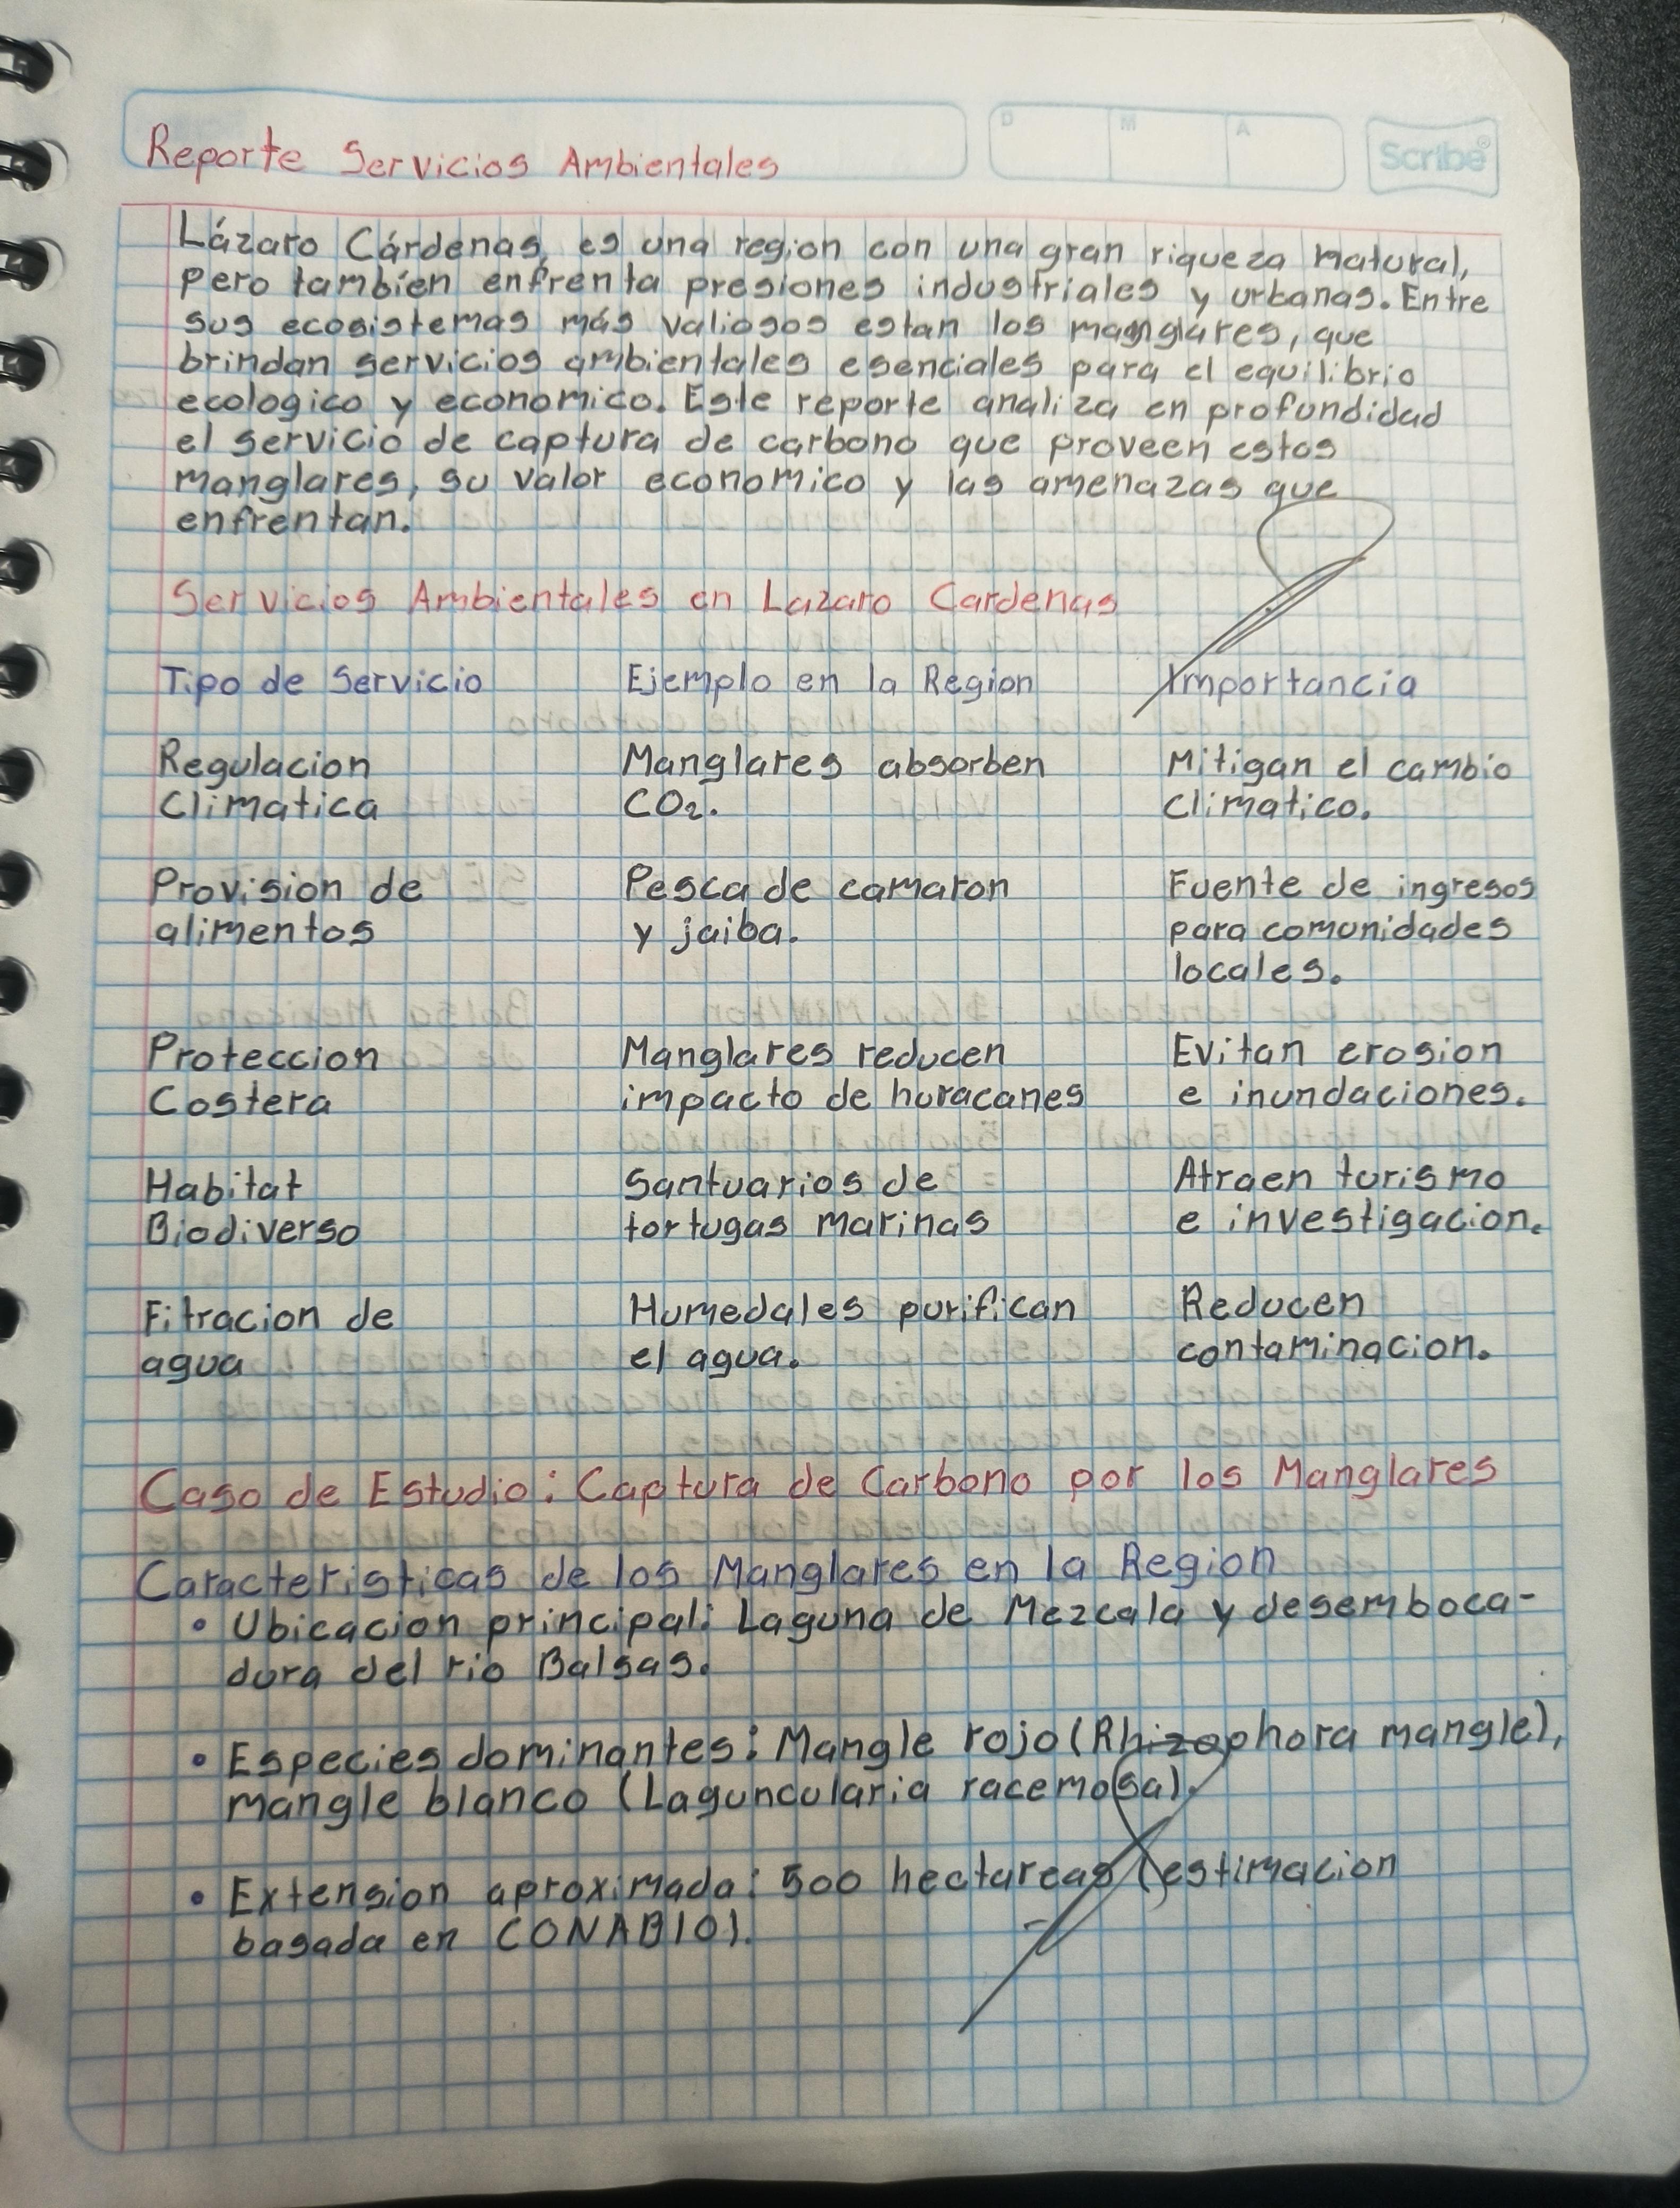 Reporte Servicios Ambientales
D M A
Scribe®
Lázaro Cárdenas, es una region con una gran riqueza natural,
pero también enfrenta presiones industriales y urbanas. Entre
sus ecosistemas más valiosos estan los manglares, que
brindan servicios ambientales esenciales para el equilibrio
ecologico y economico. Este reporte analiza en profundidad
el servicio de captura de carbono que proveen estos
manglares, su valor economico y las amenazas que
enfrentan.
Servicios Ambientales en Lazaro Cardenas
Tipo de Servicio Ejemplo en la Region Importancia
Regulacion Manglares absorben Mitigan el cambio
Climatica CO₂. climatico.
Provision de Pesca de camaron Fuente de ingresos
alimentos y jaiba. para comunidades
locales.
Proteccion Manglares reducen Evitan erosion
Costera impacto de huracanes e inundaciones.
Habitat Santuarios de Atraen turismo
Biodiverso tortugas marinas e investigacion.
Fitracion de Humedales purifican Reducen
agua el agua. contaminacion.
Caso de Estudio: Captura de Carbono por los Manglares
Caracteristicas de los Manglares en la Region
• Ubicacion principal: Laguna de Mezcala y desemboca-
dura del rio Balsas.
• Especies dominantes: Mangle rojo (Rhizophora mangle),
mangle blanco (Laguncularia racemosa).
• Extension aproximada: 500 hectareas (estimacion
basada en CONABIO).